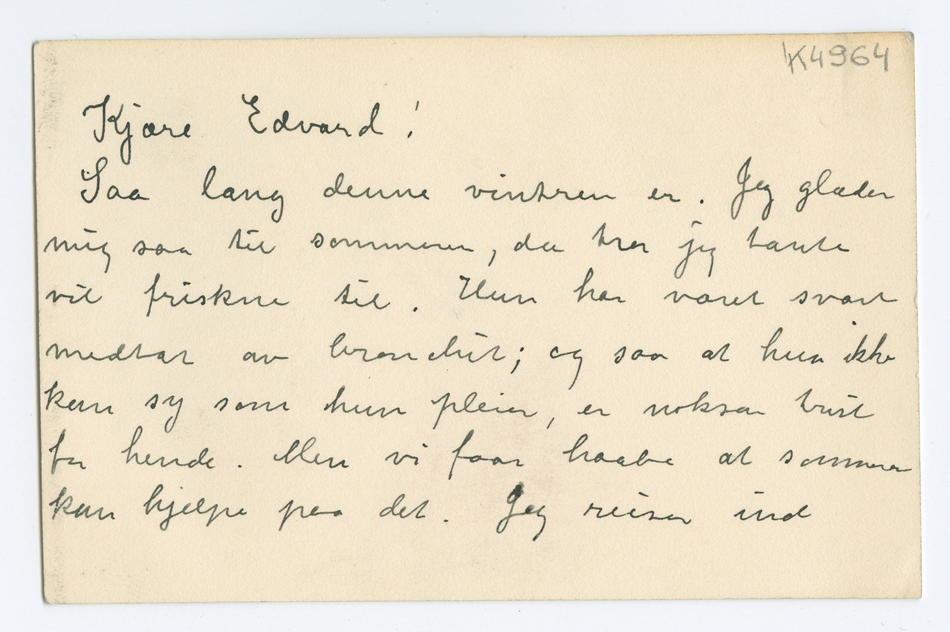 K4964
Kjære Edvard!
Saa lang denne vintren er. Jeg glæder
mig saa til sommeren, da tror jeg tante
vil friskne til. Hun har været svært
medtat av bronchit; og saa at hun ikke
kan sy som hun pleier, er noksaa trist
for hende. Men vi faar haabe at sommeren
kan hjelpe paa det. Jeg reiser ind